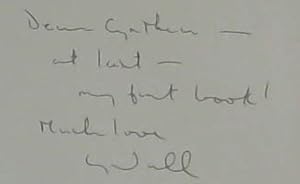 Dear Cynthia —
at last —
my first book!
Much love